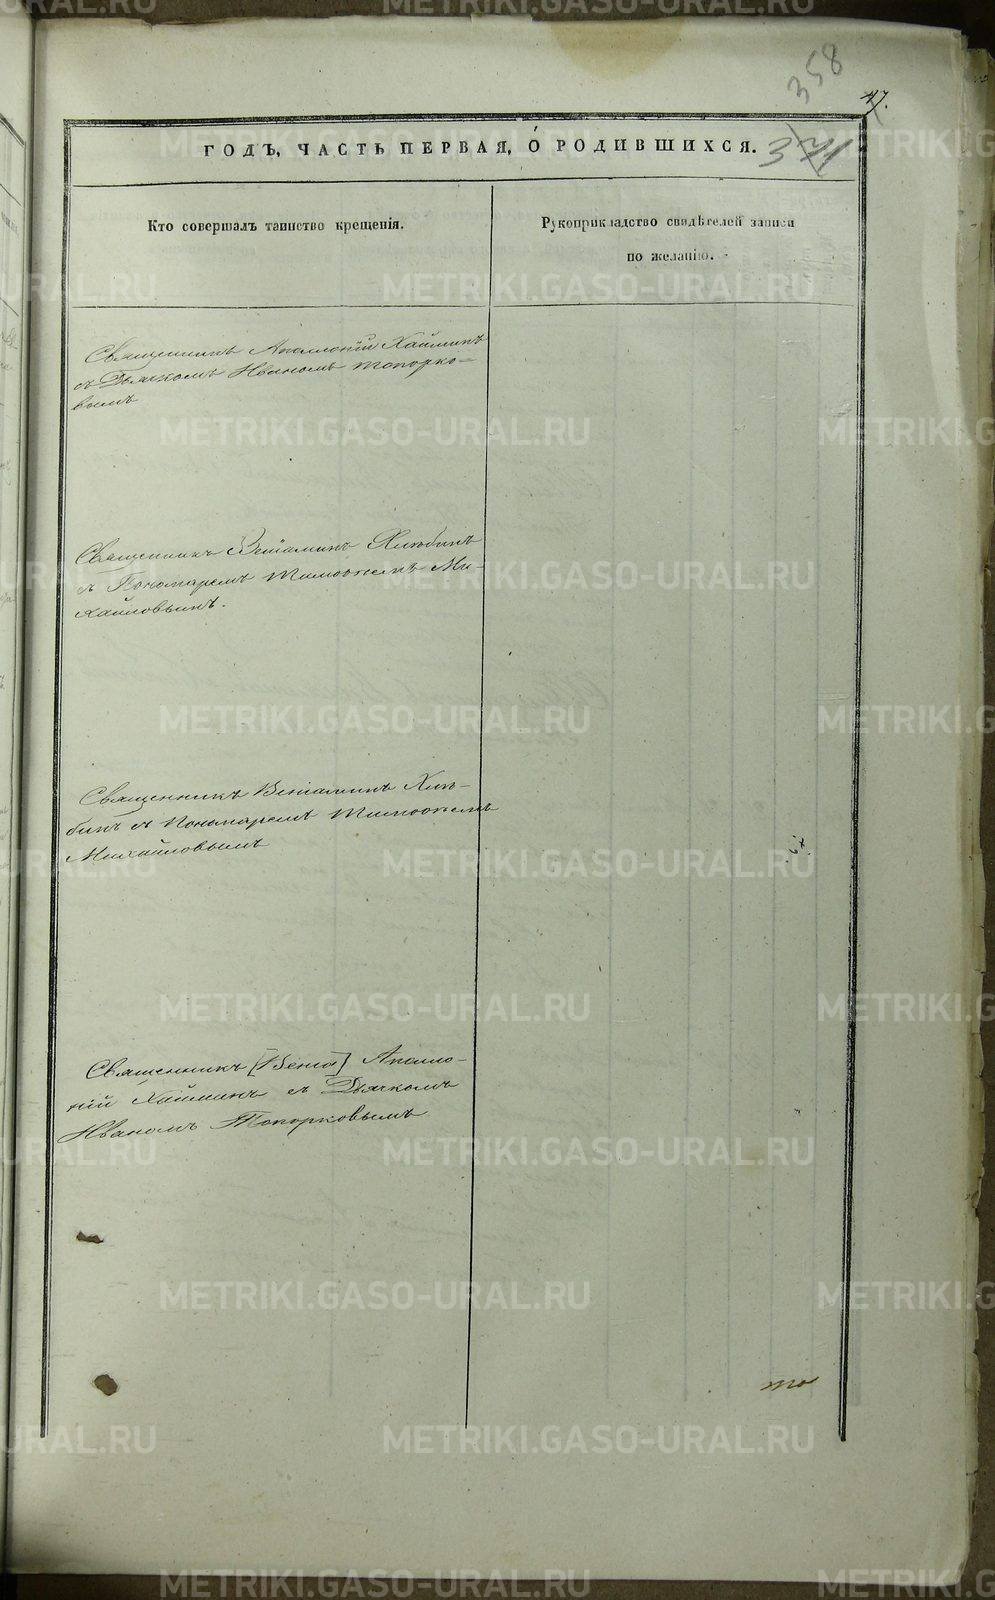 358
47.
ГОДЪ, ЧАСТЬ ПЕРВАЯ, О РОДИВШИХСЯ.
371
Кто совершалъ таинство крещенія.
Рукоприкладство свидѣтелей записи
по желанію.
Священникъ Аполлоній Хайминъ
съ Дьячкомъ Иваномъ Топорко-
вымъ
Священникъ Веніаминъ Хлюбинъ
съ Пономаремъ Тимоѳеемъ Ми-
хайловымъ.
Священникъ Веніаминъ Хлю-
бинъ съ Пономаремъ Тимоѳеемъ
Михайловымъ
Священникъ [Веніа] Аполло-
ній Хайминъ съ Дьячкомъ
Иваномъ Топорковымъ
то
METRIKI.GASO-URAL.RU